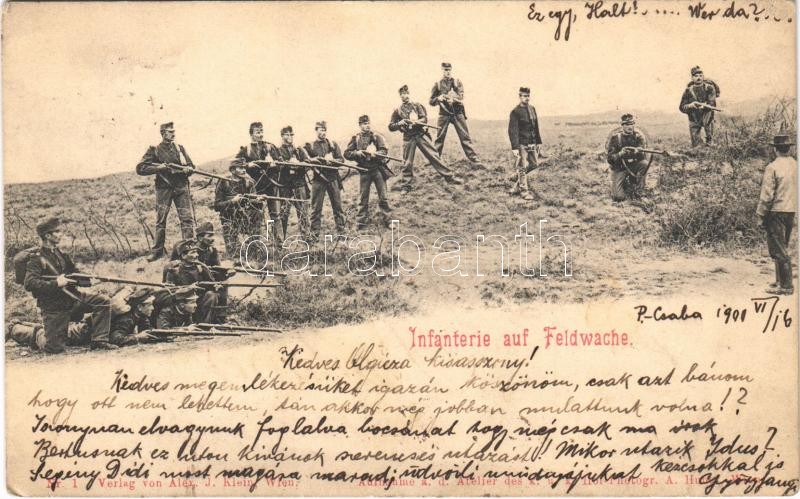 Ez egy, Halt! .... Wer da? ....
P.-Csaba 1901 VI/16
darabanth
Infanterie auf Feldwache.
Kedves Olgicza kisasszony!
Kedves megemlékezésüket igazán köszönöm, csak azt bánom
hogy ott nem lehettem, tán akkor még jobban mulattunk volna!?
Iszonyúan elvagyunk foglalva bocsánat hogy még csak ma írok
Bertusnak ez úton kívánok szerencsés utazást! Mikor utazik Idus?
Szegény Dédi most magára marad; üdvözli mindnyájukat kézcsókkal is
Nr. 1 Verlag von Alex. J. Klein, Wien. Aufnahme a. d. Atelier des k. u. k. Hof-Photogr. A.